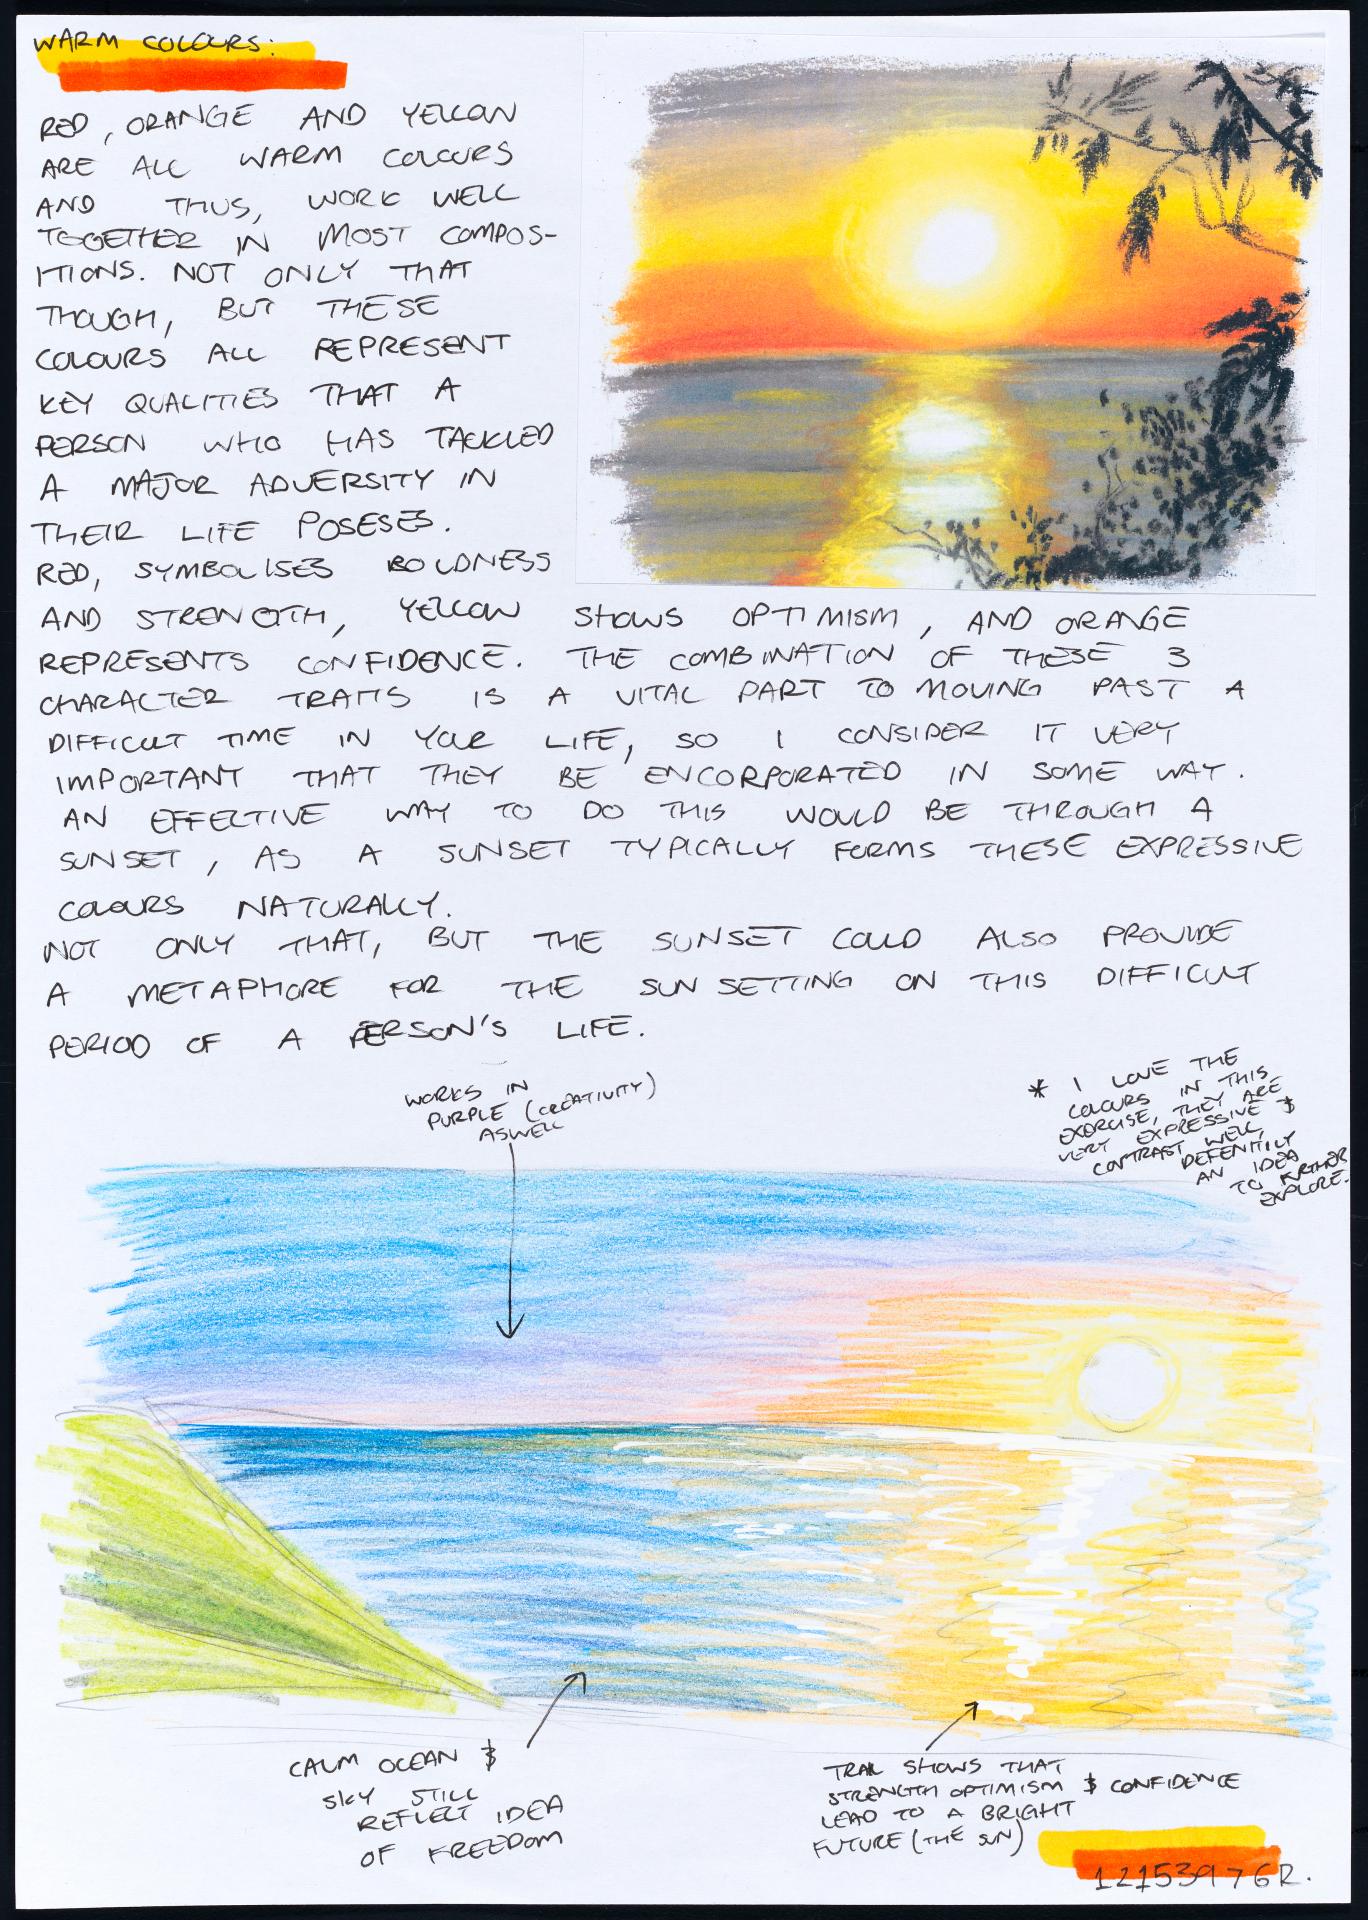 WARM COLOURS:
RED, ORANGE AND YELLOW
ARE ALL WARM COLOURS
AND THUS, WORK WELL
TOGETHER IN MOST COMPOS-
ITIONS. NOT ONLY THAT
THOUGH, BUT THESE
COLOURS ALL REPRESENT
KEY QUALITIES THAT A
PERSON WHO HAS TACKLED
A MAJOR ADVERSITY IN
THEIR LIFE POSESES.
RED, SYMBOLISES BOLDNESS
AND STRENGTH, YELLOW SHOWS OPTIMISM, AND ORANGE
REPRESENTS CONFIDENCE. THE COMBINATION OF THESE 3
CHARACTER TRAITS IS A VITAL PART TO MOVING PAST A
DIFFICULT TIME IN YOUR LIFE, SO I CONSIDER IT VERY
IMPORTANT THAT THEY BE ENCORPORATED IN SOME WAY.
AN EFFECTIVE WAY TO DO THIS WOULD BE THROUGH A
SUNSET, AS A SUNSET TYPICALLY FORMS THESE EXPRESSIVE
COLOURS NATURALLY.
NOT ONLY THAT, BUT THE SUNSET COULD ALSO PROVIDE
A METAPHORE FOR THE SUN SETTING ON THIS DIFFICULT
PERIOD OF A PERSON'S LIFE.
WORKS IN
PURPLE (CREATIVITY)
ASWELL
* I LOVE THE
COLOURS IN THIS
EXERCISE, THEY ARE
VERY EXPRESSIVE &
CONTRAST WELL,
DEFENITILY
AN IDEA
TO FURTHER
EXPLORE.
CALM OCEAN &
SKY STILL
REFLECT IDEA
OF FREEDOM
TRAIL SHOWS THAT
STRENGTH OPTIMISM & CONFIDENCE
LEAD TO A BRIGHT
FUTURE (THE SUN)
12153976R.